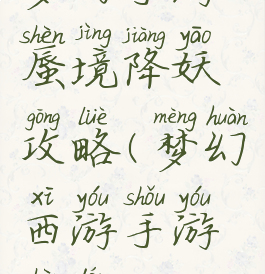 shèn jìng jiàng yāo
蜃境降妖
gōng lüè mèng huàn
攻略(梦幻
xī yóu shǒu yóu
西游手游